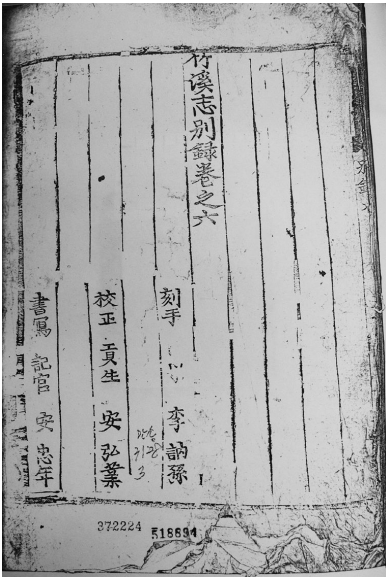 竹溪志別錄卷之六
刻手 李訥孫
校正 貢生 安弘葉
書寫 記官 安忠年
372224
518694